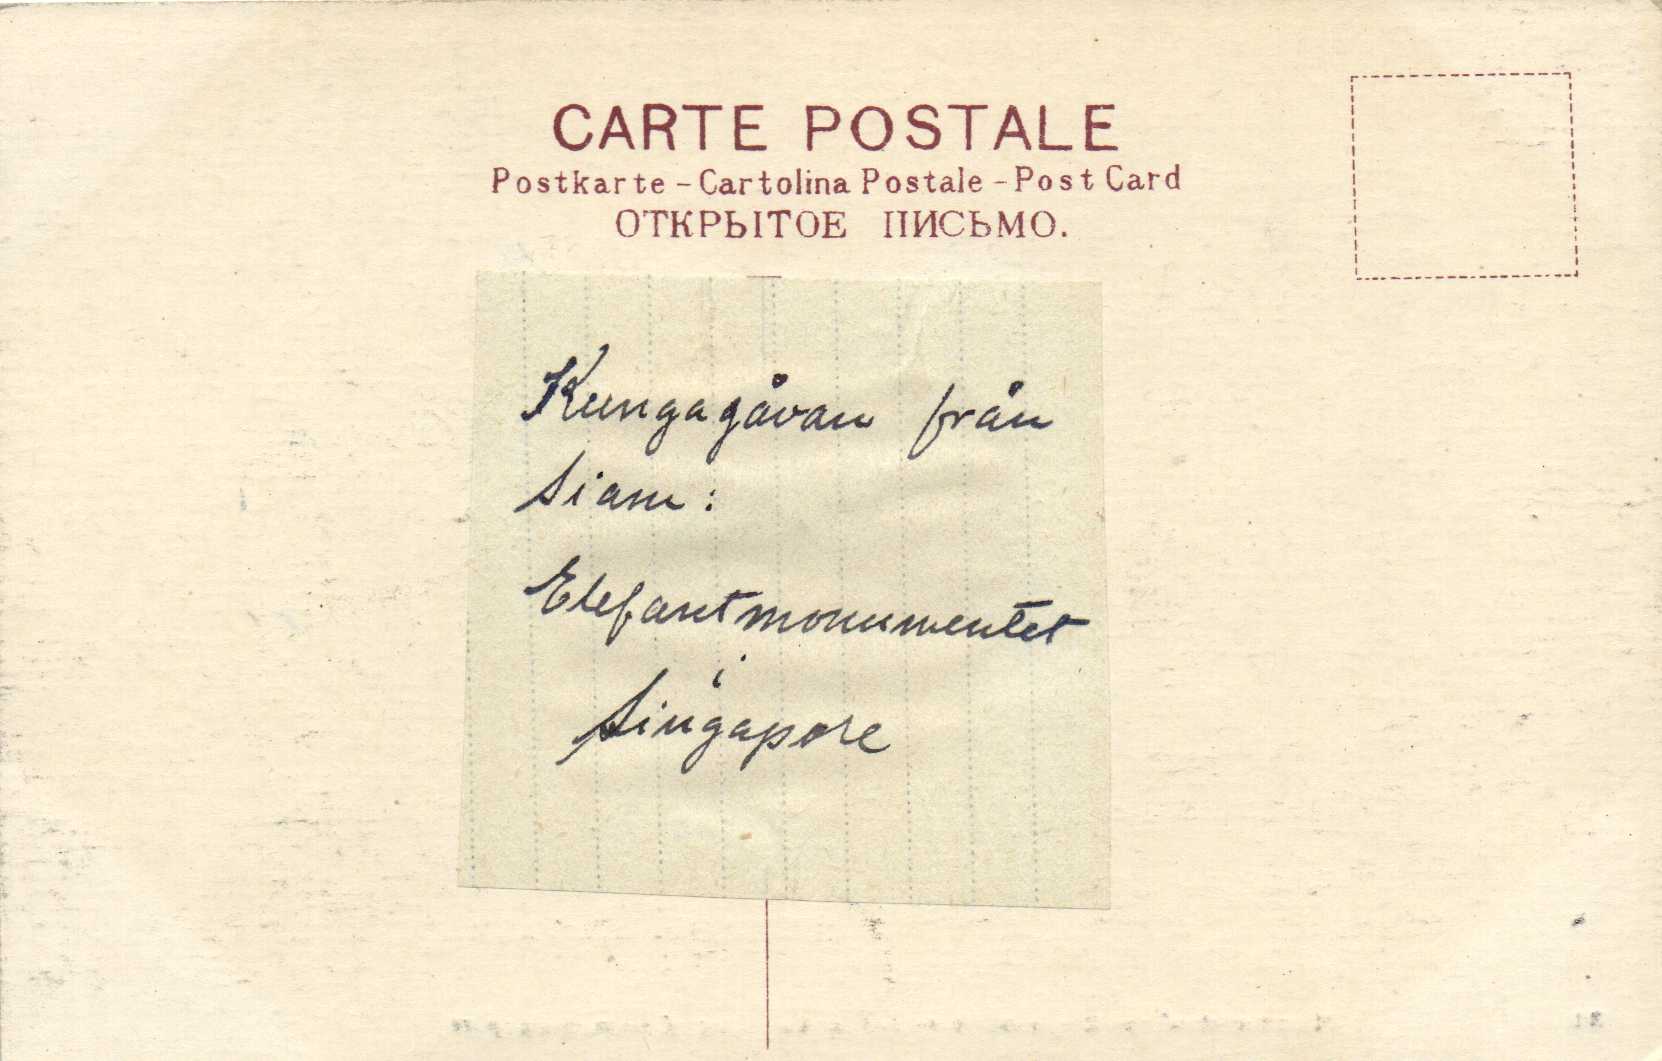 CARTE POSTALE
Postkarte - Cartolina Postale - Post Card
ОТКРЫТОЕ ПИСЬМО.
Kungagåvan från
Siam:
Elefantmonumentet
i
Singapore